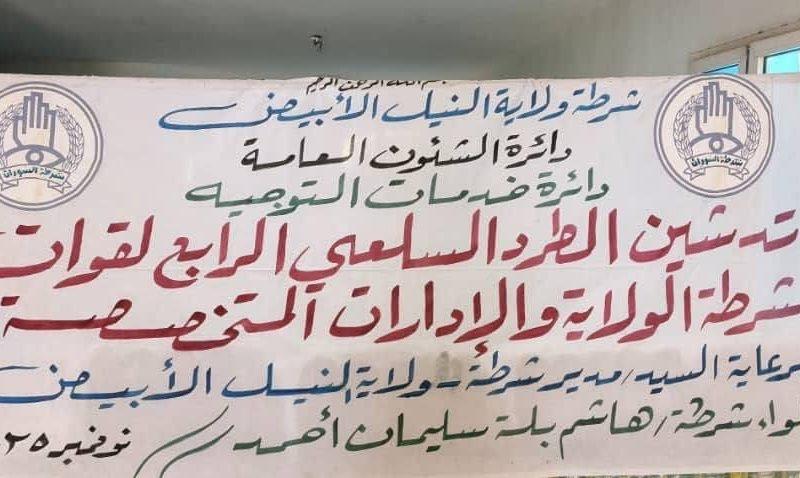 بسم الله الرحمن الرحيم
شرطة ولاية النيل الأبيض
دائرة الشئون العامة
دائرة خدمات التوجيه
تدشين الطرد السلعي الرابع لقوات
شرطة الولاية والإدارات المتخصصة
برعاية السيد/ مدير شرطة - ولاية النيل الأبيض
لواء شرطة/ هاشم بلة سليمان أحمد // نوفمبر ٢٥
شرطة السودان
شرطة السودان